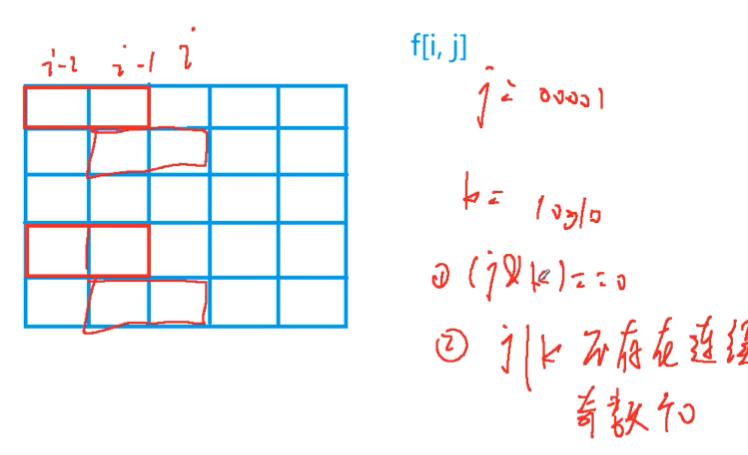 i-2 i-1 i
f[i, j]
j = 00001
k = 10010
① (j & k) == 0
② j | k 不存在连续
奇数个0